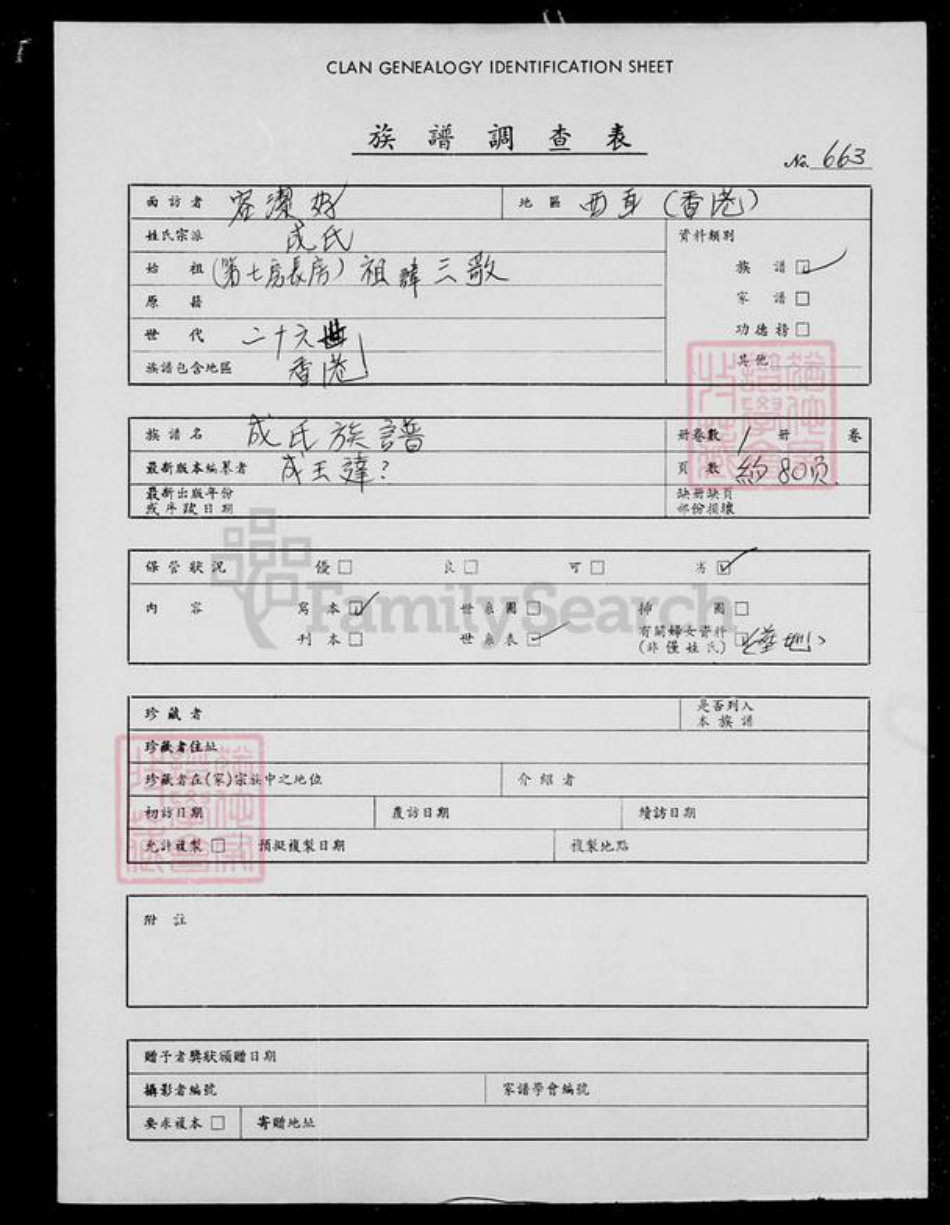 CLAN GENEALOGY IDENTIFICATION SHEET
族譜調查表
No. 663
面訪者 容潔好 地區 西貢 (香港)
姓氏宗派 成氏 資料類別
始祖 (第七房長房) 祖諱三敬 族譜
原籍 家譜
世代 二十六世 功德榜
族譜包含地區 香港 其他
族譜名 成氏族譜 冊卷數 1 冊 卷
最新版本編纂者 成玉達? 頁數 約80頁
最新出版年份 缺冊缺頁
或序跋日期 部份損壞
保管狀況 優 良 可 劣
內容 寫本 世系圖 挿圖
刊本 世系表 有關婦女資料
(非僅姓氏) (塋地)
FamilySearch
珍藏者 是否列入
本族譜
珍藏者住址
珍藏者在(家)宗族中之地位 介紹者
初訪日期 覆訪日期 續訪日期
允許複製 預擬複製日期 複製地點
附註
贈予者獎狀頒贈日期
攝影者編號 家譜學會編號
要求複本 寄贈地址